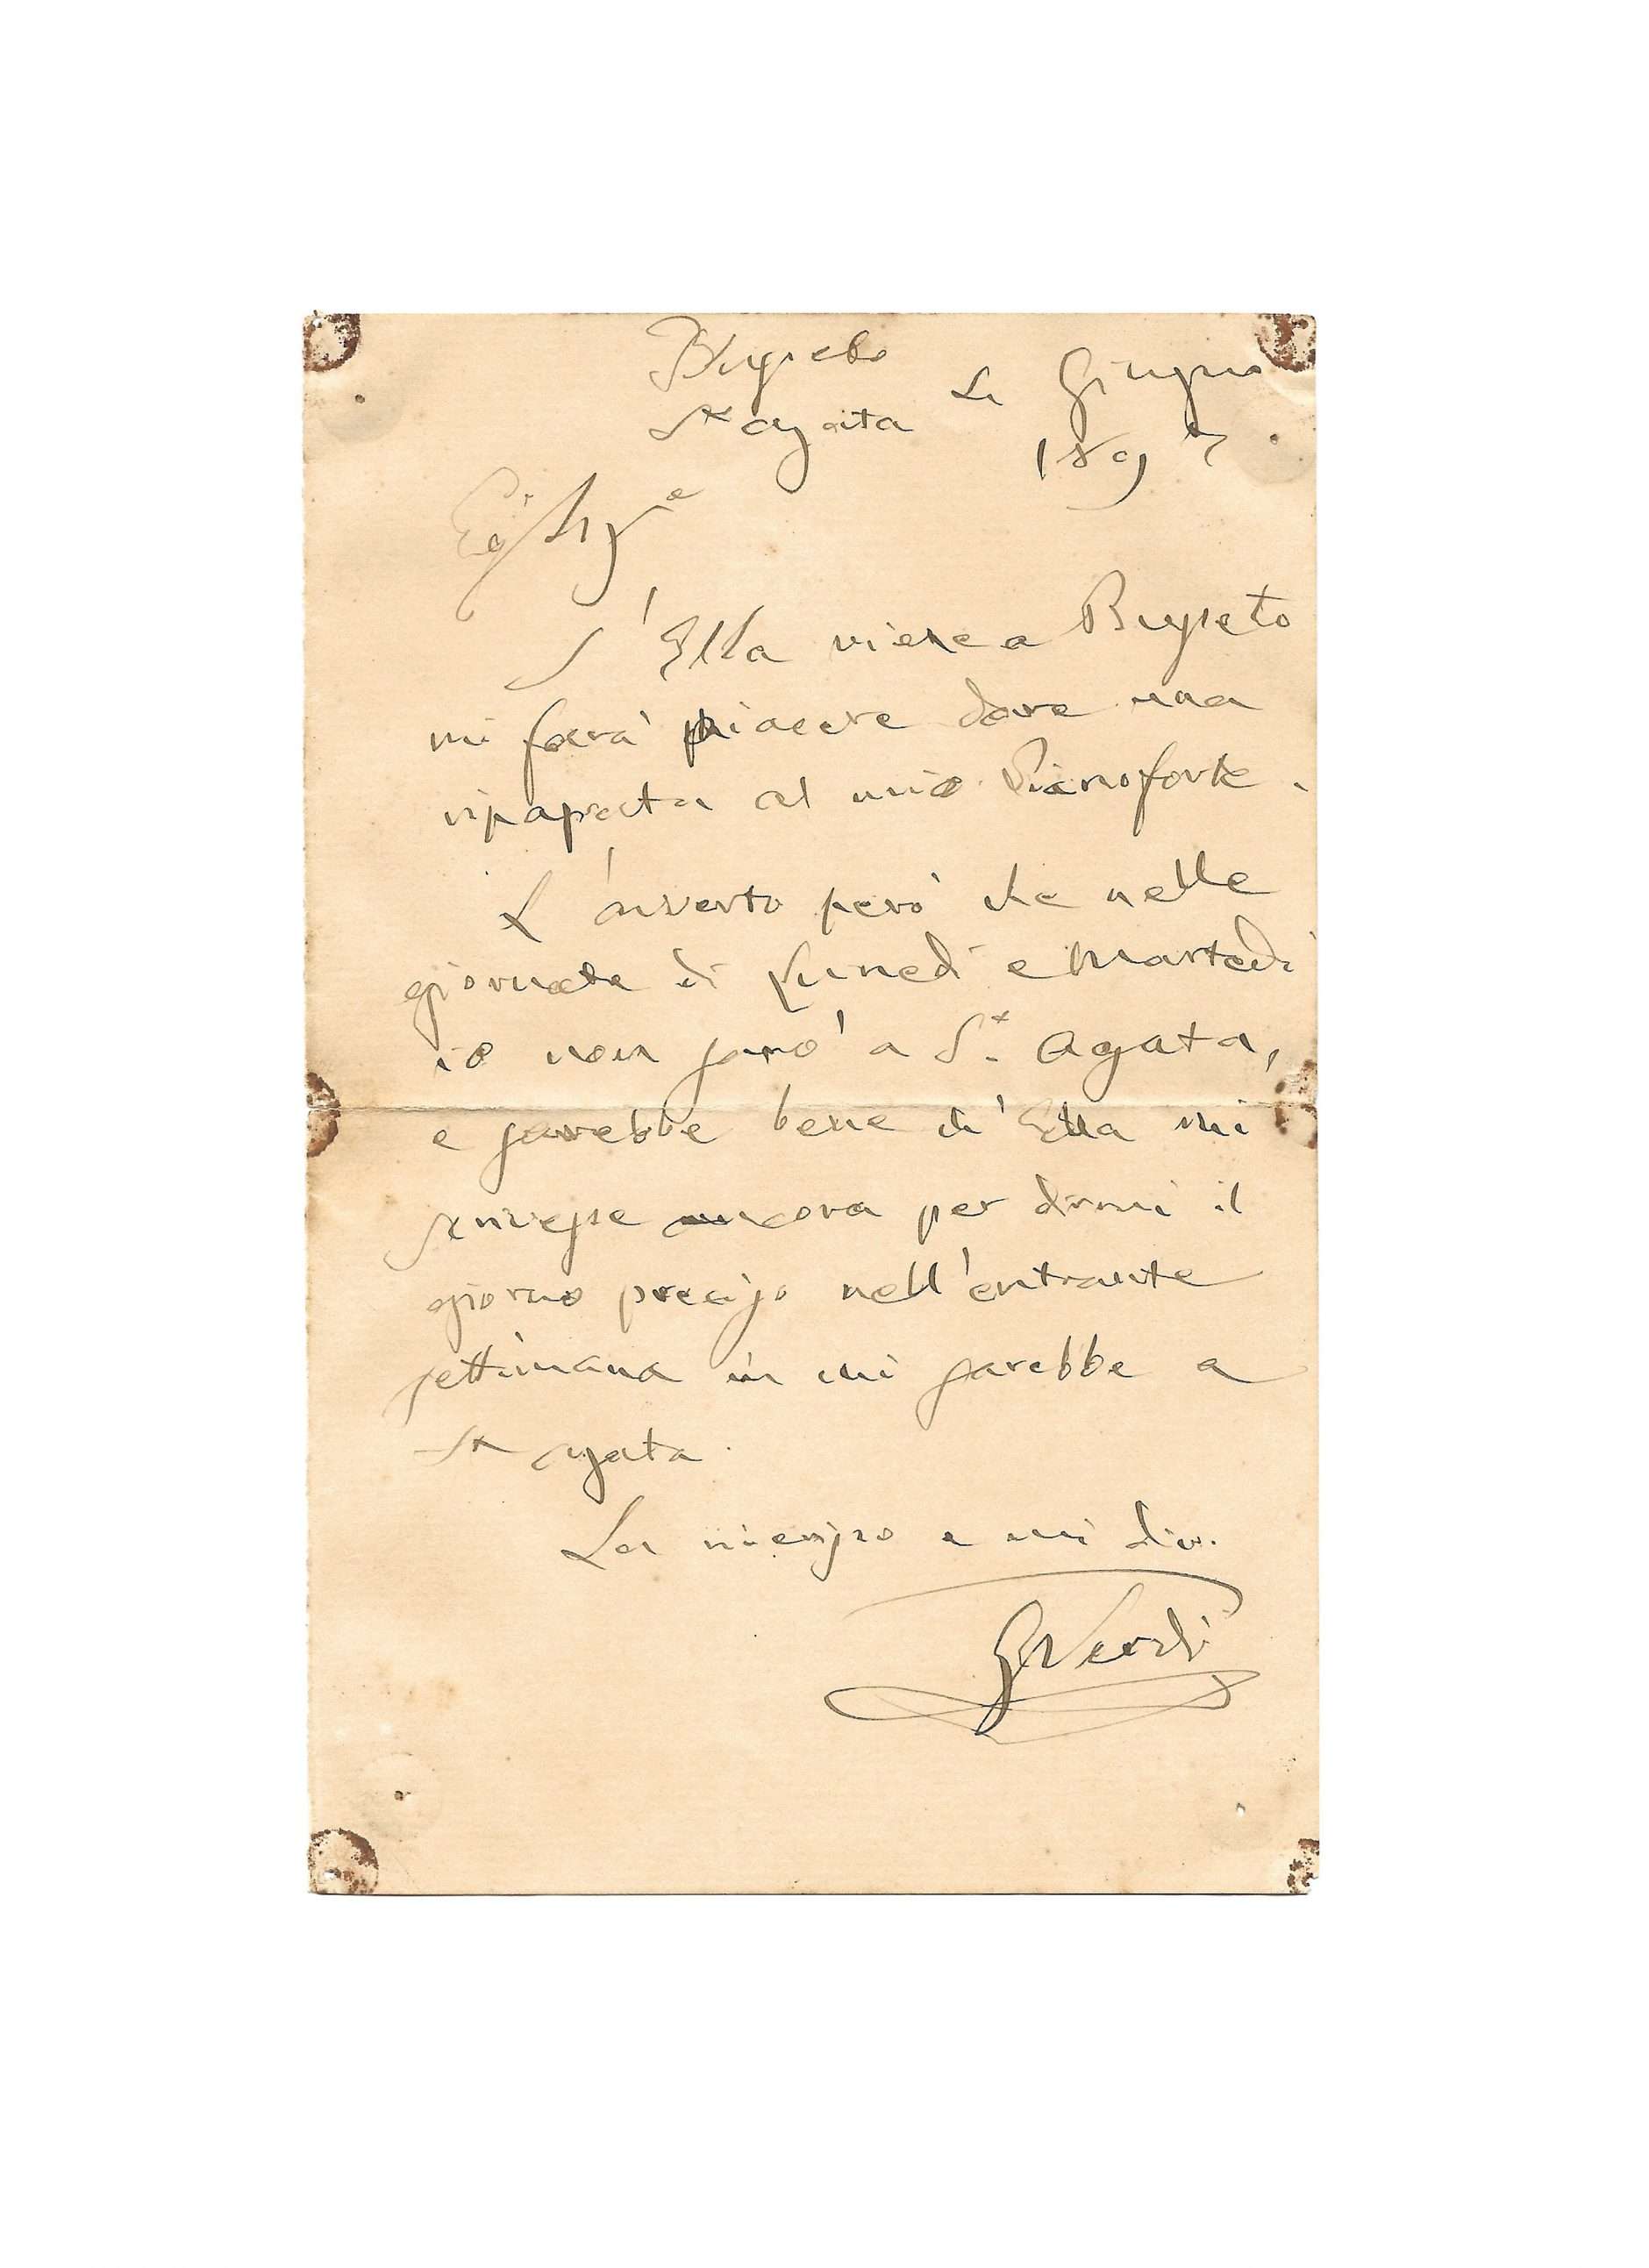 Busseto
St Agata Li Giugno
1897
Eg. Sigre
S'Ella viene a Busseto
mi farà piacere dare una
ripassata al mio Pianoforte.
L'avverto però che nelle
giornate di Lunedì e Martedì
io non sarò a St. Agata,
e sarebbe bene ch'Ella mi
scrivesse ancora per dirmi il
giorno preciso nell'entrante
settimana in cui sarebbe a
St Agata.
La e mi dico.
GVerdi